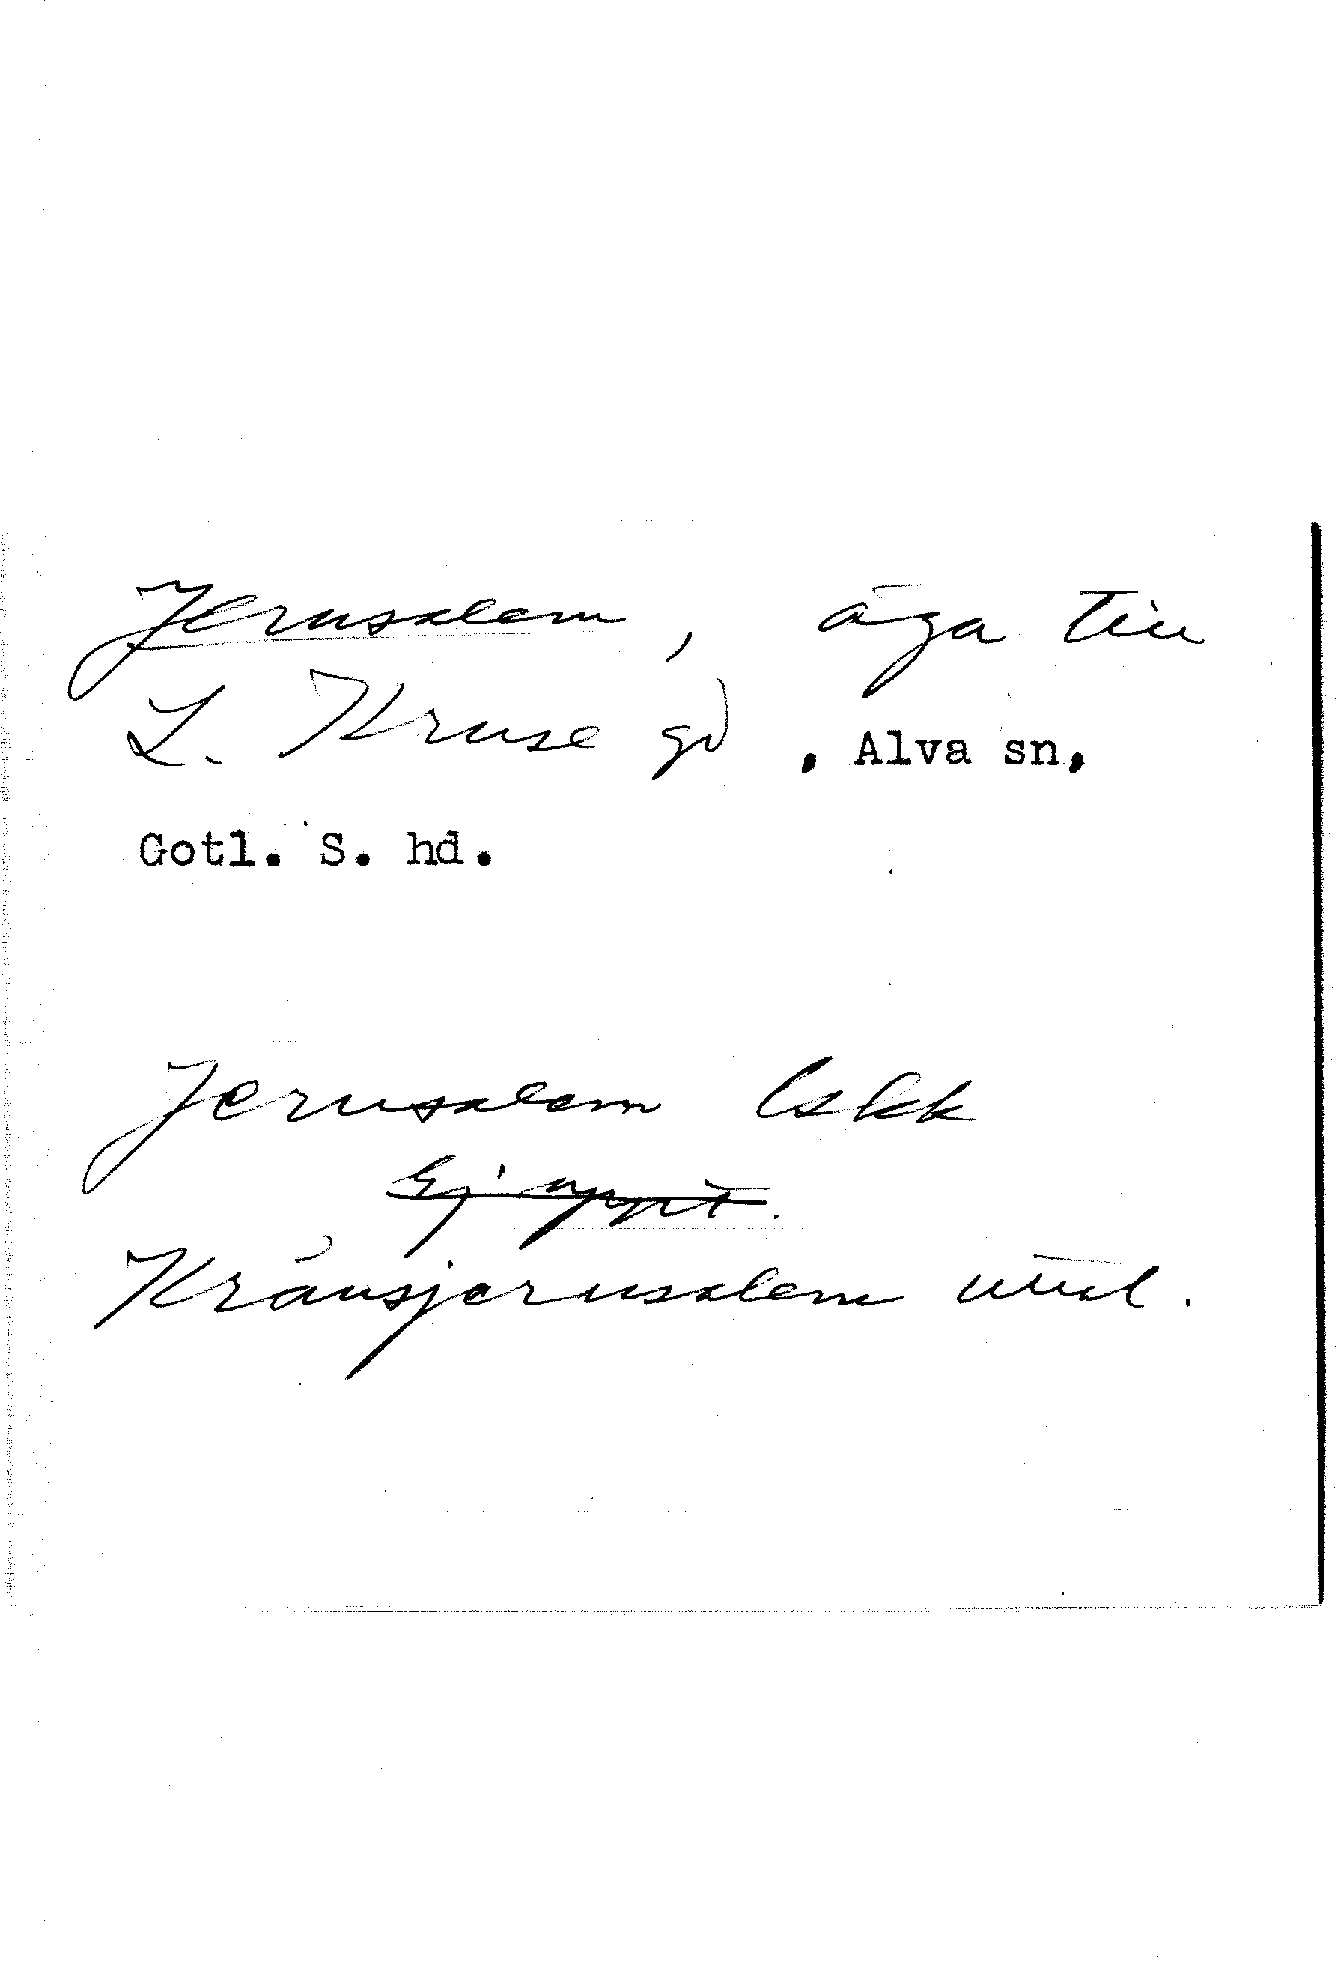 Jerusalem, äga till
L. Kruse gd, Alva sn,
Gotl. S. hd.
Jerusalem Lskk
Ej uppt.
Kräusjerusalem uttal.